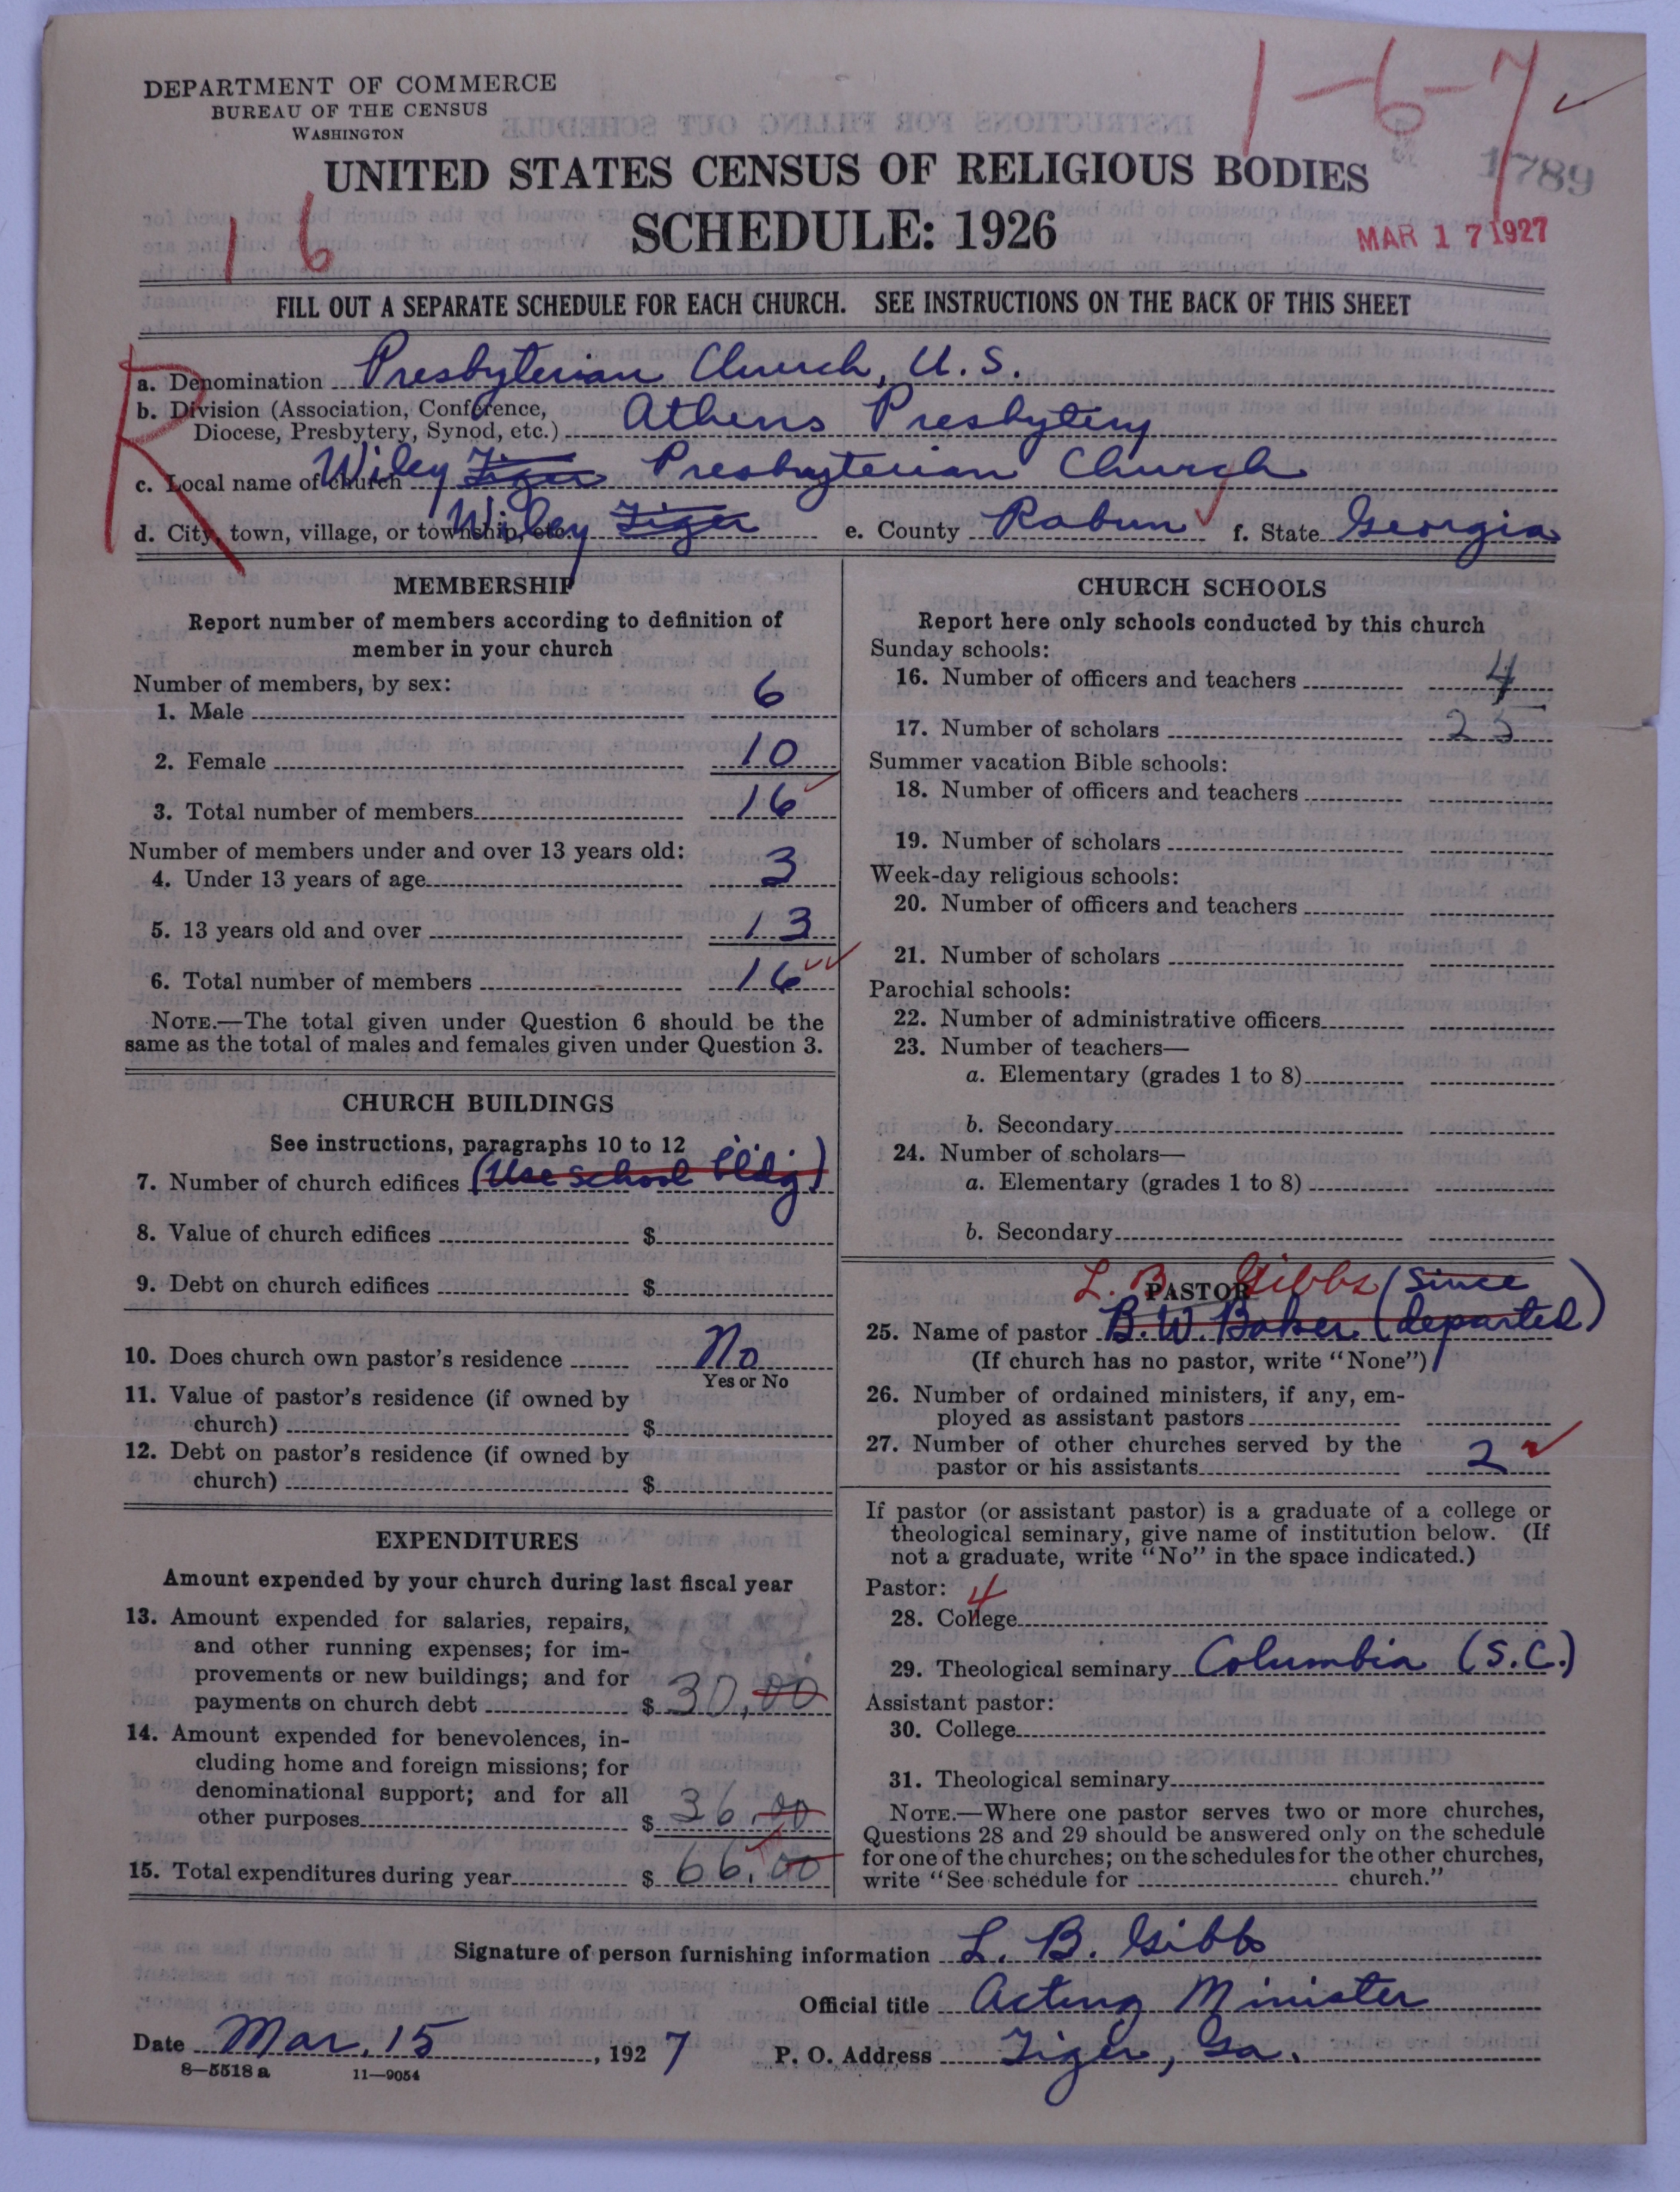 DEPARTMENT OF COMMERCE
BUREAU OF THE CENSUS
WASHINGTON
1-6-7
1789
UNITED STATES CENSUS OF RELIGIOUS BODIES
16
SCHEDULE: 1926
MAR 17 1927
FILL OUT A SEPARATE SCHEDULE FOR EACH CHURCH. SEE INSTRUCTIONS ON THE BACK OF THIS SHEET
R
a. Denomination Presbyterian Church, U.S.
b. Division (Association, Conference,
Diocese, Presbytery, Synod, etc.) Athens Presbytery
c. Local name of church Wiley Tiger Presbyterian Church
d. City, town, village, or township, etc. Wiley Tiger e. County Rabun f. State Georgia
MEMBERSHIP
Report number of members according to definition of
member in your church
Number of members, by sex:
1. Male 6
2. Female 10
3. Total number of members 16
Number of members under and over 13 years old:
4. Under 13 years of age 3
5. 13 years old and over 13
6. Total number of members 16
NOTE.—The total given under Question 6 should be the
same as the total of males and females given under Question 3.
CHURCH BUILDINGS
See instructions, paragraphs 10 to 12
7. Number of church edifices (Use school bldg)
8. Value of church edifices $
9. Debt on church edifices $
10. Does church own pastor's residence No
Yes or No
11. Value of pastor's residence (if owned by
church) $
12. Debt on pastor's residence (if owned by
church) $
EXPENDITURES
Amount expended by your church during last fiscal year
13. Amount expended for salaries, repairs,
and other running expenses; for im-
provements or new buildings; and for
payments on church debt $ 30.00
14. Amount expended for benevolences, in-
cluding home and foreign missions; for
denominational support; and for all
other purposes $ 36.00
15. Total expenditures during year $ 66.00
CHURCH SCHOOLS
Report here only schools conducted by this church
Sunday schools:
16. Number of officers and teachers 4
17. Number of scholars 25
Summer vacation Bible schools:
18. Number of officers and teachers
19. Number of scholars
Week-day religious schools:
20. Number of officers and teachers
21. Number of scholars
Parochial schools:
22. Number of administrative officers
23. Number of teachers—
a. Elementary (grades 1 to 8)
b. Secondary
24. Number of scholars—
a. Elementary (grades 1 to 8)
b. Secondary
L. B. Gibbs (Since
PASTOR
25. Name of pastor B. W. Baker (departed)
(If church has no pastor, write "None")
26. Number of ordained ministers, if any, em-
ployed as assistant pastors
27. Number of other churches served by the
pastor or his assistants 2
If pastor (or assistant pastor) is a graduate of a college or
theological seminary, give name of institution below. (If
not a graduate, write "No" in the space indicated.)
Pastor: 4
28. College
29. Theological seminary Columbia (S.C.)
Assistant pastor:
30. College
31. Theological seminary
NOTE.—Where one pastor serves two or more churches,
Questions 28 and 29 should be answered only on the schedule
for one of the churches; on the schedules for the other churches,
write "See schedule for church."
Signature of person furnishing information L. B. Gibbs
Official title Acting Minister
Date Mar. 15, 1927 P. O. Address Tiger, Ga.
8—5518 a 11—9054